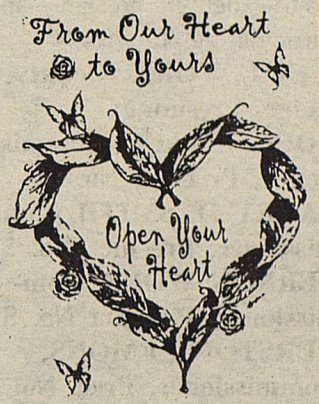 From Our Heart
to Yours
Open Your
Heart